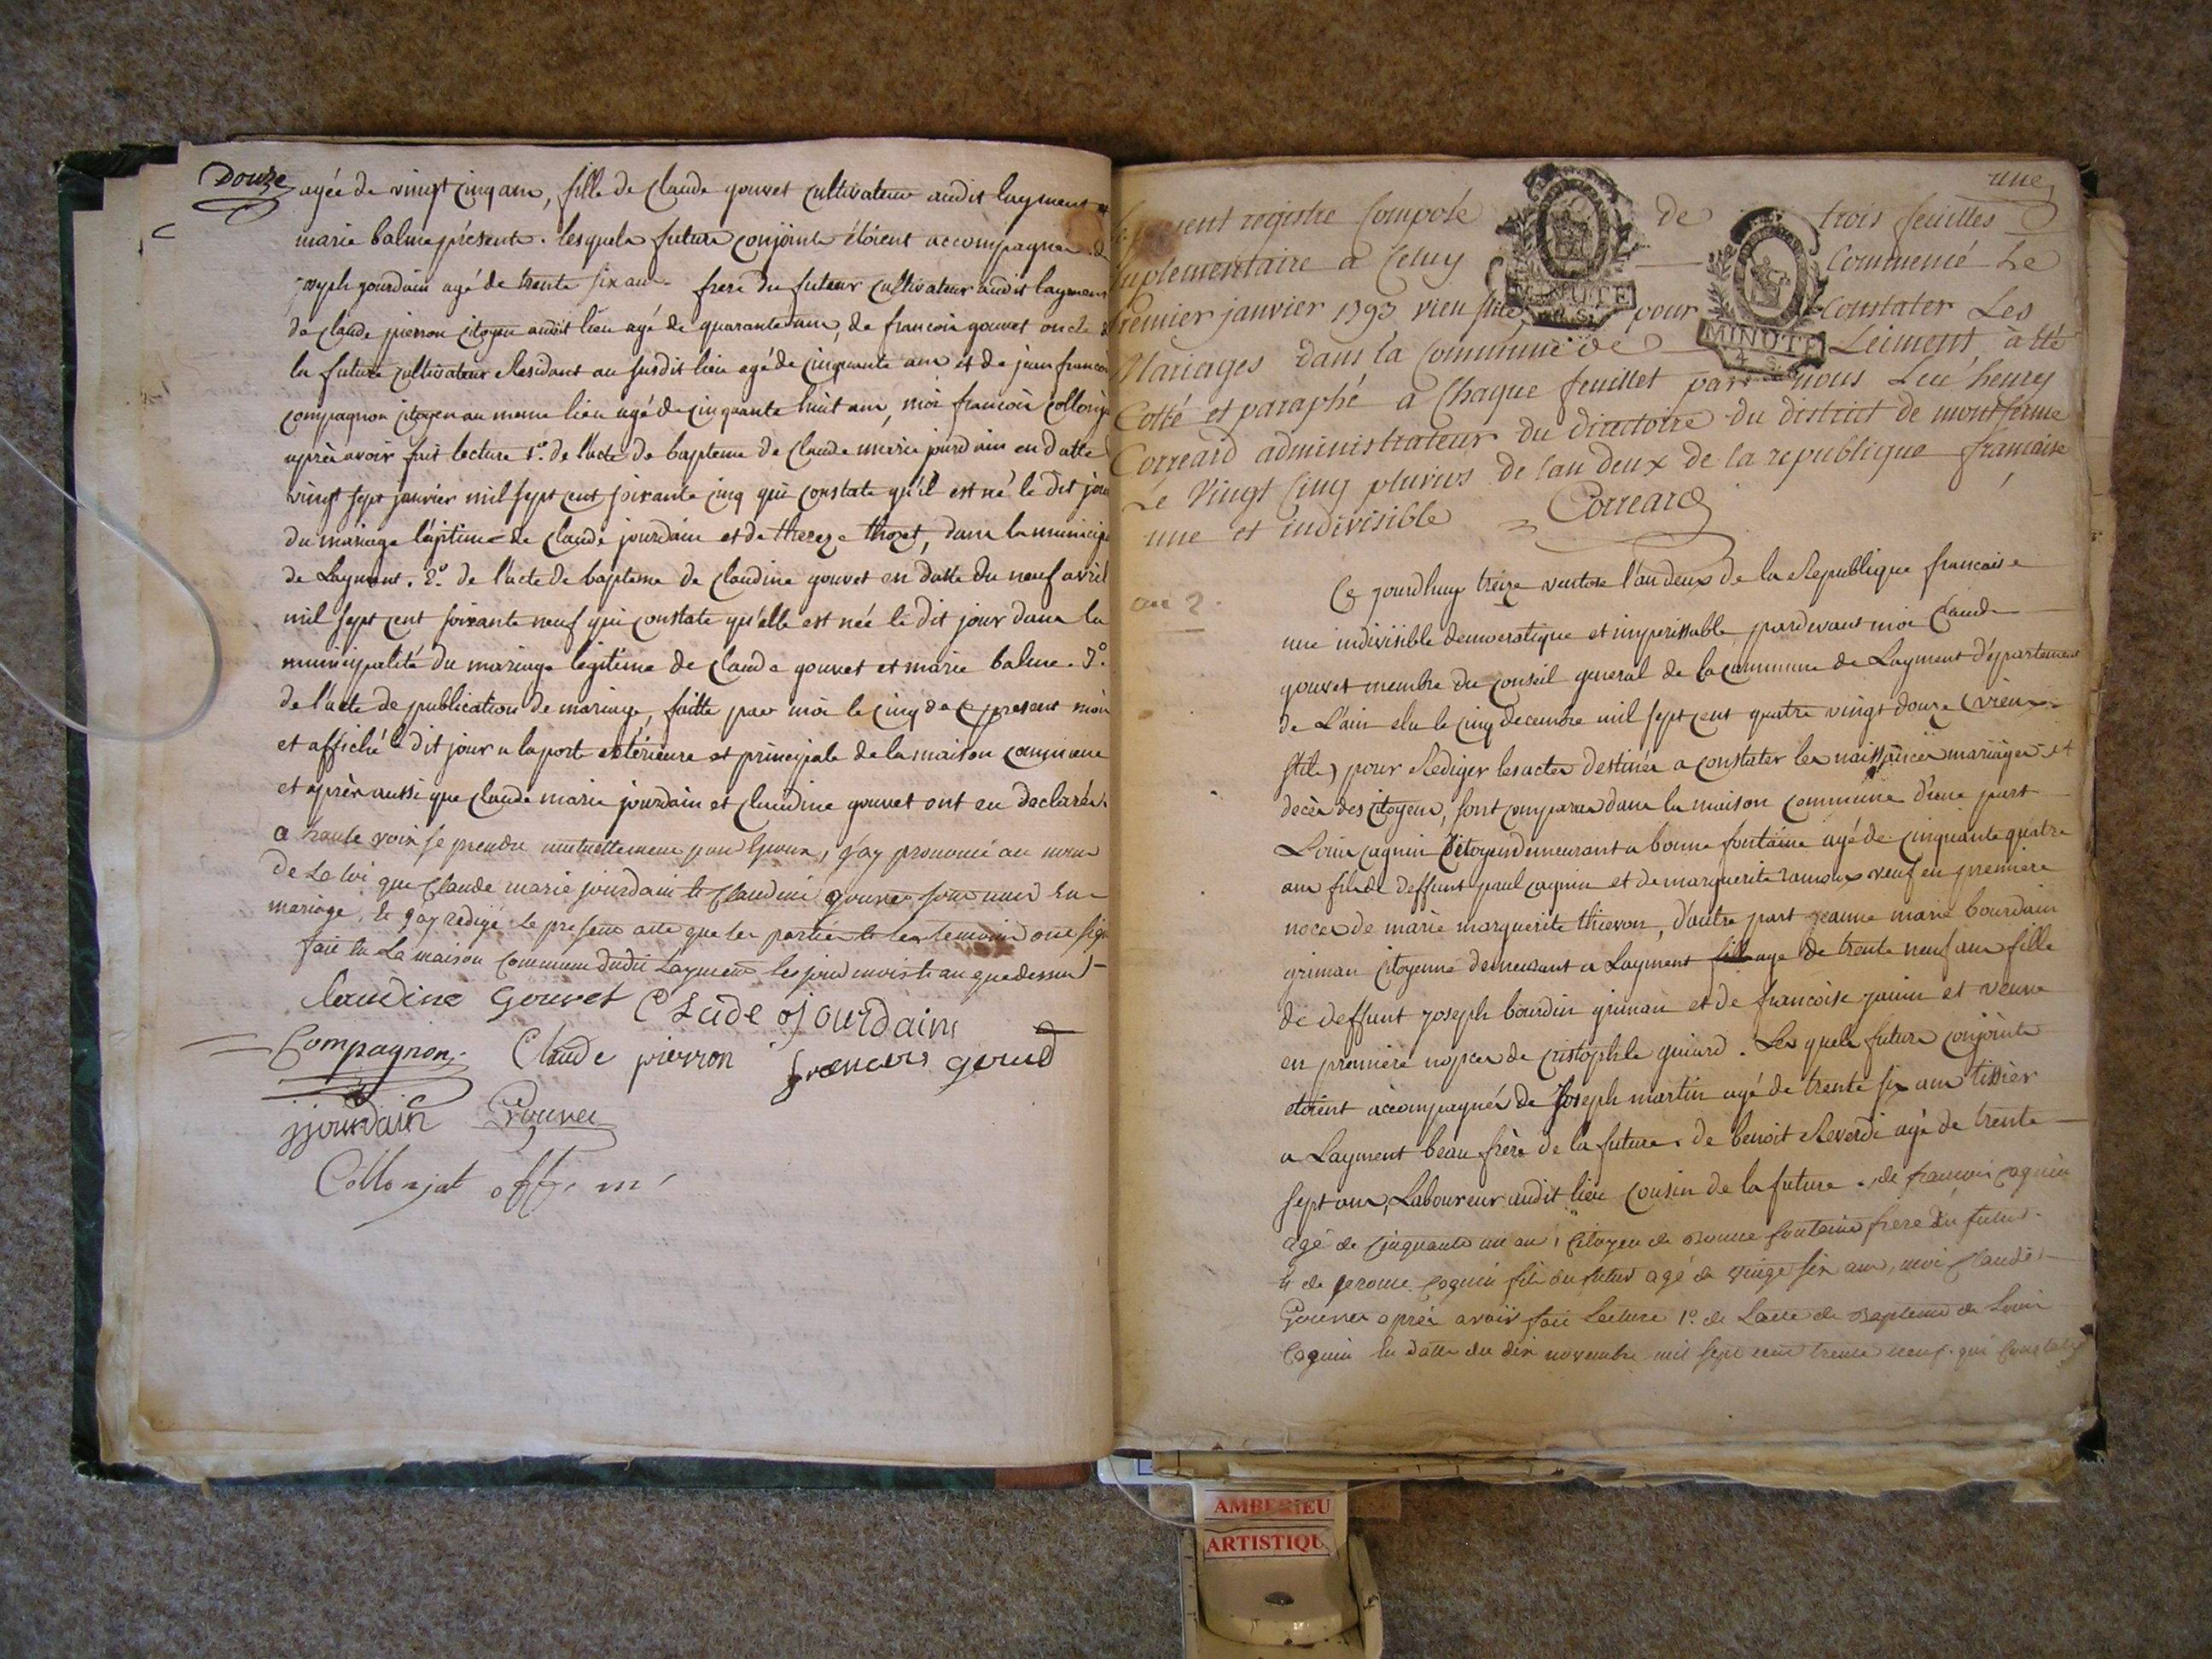 Douze
agée de vingt cinq ans, fille de claude gouvet cultivateur audit layment et
marie balme présente. lesquels futurs conjoints étoient accompagnés de
joseph jourdain agé de trente six ans frere du futeur cultivateur audit layment
de claude pierron citoyen audit lieu agé de quarante ans, de francois gouvet oncle de
la future cultivateur Residant au susdit lieu agé de cinquante ans et de jean francois
compagnon citoyen au meme lieu agé de cinquante huit ans, moi francois collonja
après avoir fait lecture 1.º de l'acte de bapteme de claude marie jourdain en datte
vingt sept janvier mil sept cent soixante cinq qui constate qu'il est né le dit jour
du mariage légitime de claude jourdain et de thereze thozet, dans la municip
de Layment. 2.º de l'acte de bapteme de claudine gouvet en datte du neuf avril
mil sept cent soixante neuf qui constate qu'elle est née le dit jour dans la
municipalité du mariage legitime de claude gouvet et marie balme. 3.º
de l'acte de publication de mariage, faitte par moi le cinq de ce present mois
et affiché le dit jour a la porte extérieure et principale de la maison commune
et après aussi que claude marie jourdain et claudine gouvet ont eu declarés
a haute voix se prendre mutuellement pour Epoux, j'ay prononcé au nom
de la loi que Claude marie jourdain et Claudine gouvet sont unis En
mariage, et j'ay redigé le present acte que les parties et les temoins ont sign
fait En La maison Commune dudit Layment les jour mois et an que dessus
claudine Gouvet Clade jourdain
Compagnon Claude pierron francois
jjourdain Gouvet
Collonjat off. m.
une
le present registre Composé de trois feuilles
suplementaire a Celuy Commencé Le
Premier janvier 1793 vieu stile pour Constater Les
MINUTE
MINUTE
Mariages dans la Commune de Leiment, à été
Cotté et paraphé a Chaque feuillet par nous Luc henry
Correard administrateur du directoire du district de montferme
Le Vingt Cinq pluvios de lan deux de la republique francaise
une et indivisible Correard
an 2.
Ce jourdhuy treize ventose l'an deux de la Republique francaise
une indivisible democratique et imperissable pardevant moi Claude
gouvet membre du conseil general de la commune de Layment département
de L'ain elu le cinq decembre mil sept cent quatre vingt douze (vieux
stile) pour Rediger les actes destinés a constater les naissances mariages et
decès des citoyens, sont comparus dans la maison commune d'une part
Louis cagnin Citoyen demeurant a bonne fontaine agé de cinquante quatre
ans fils de deffunt paul cagnin et de marguerite ramoux veuf en premiere
noces de marie marguerite thievon, d'autre part jeanne marie bourdain
griman citoyenne demeurant a Layment fille age de trente neuf ans fille
de deffunt joseph bourdin griman et de francoise janin et veuve
en premiere nopces de cristophle guiard. Les quels futurs conjoints
etoient accompagnés de Joseph martin agé de trente six ans tissier
a Layment beau frère de la future. de benoit Reverdi agé de trente
sept ans, Laboureur audit lieu cousin de la future. de francois cagnin
agé de Cinquante un ans, Citoyen de Bonne fontaine frere du futur.
et de jerome Cagnin fils du futur agé de vingt six ans, moi Claude
Gouvet aprés avoir fait Lecture 1.º de L'acte de Bapteme de Louis
Cagnin En datte du dix novembre mil sept cent trente neuf. qui Constate
AMBERIEU
ARTISTIQU